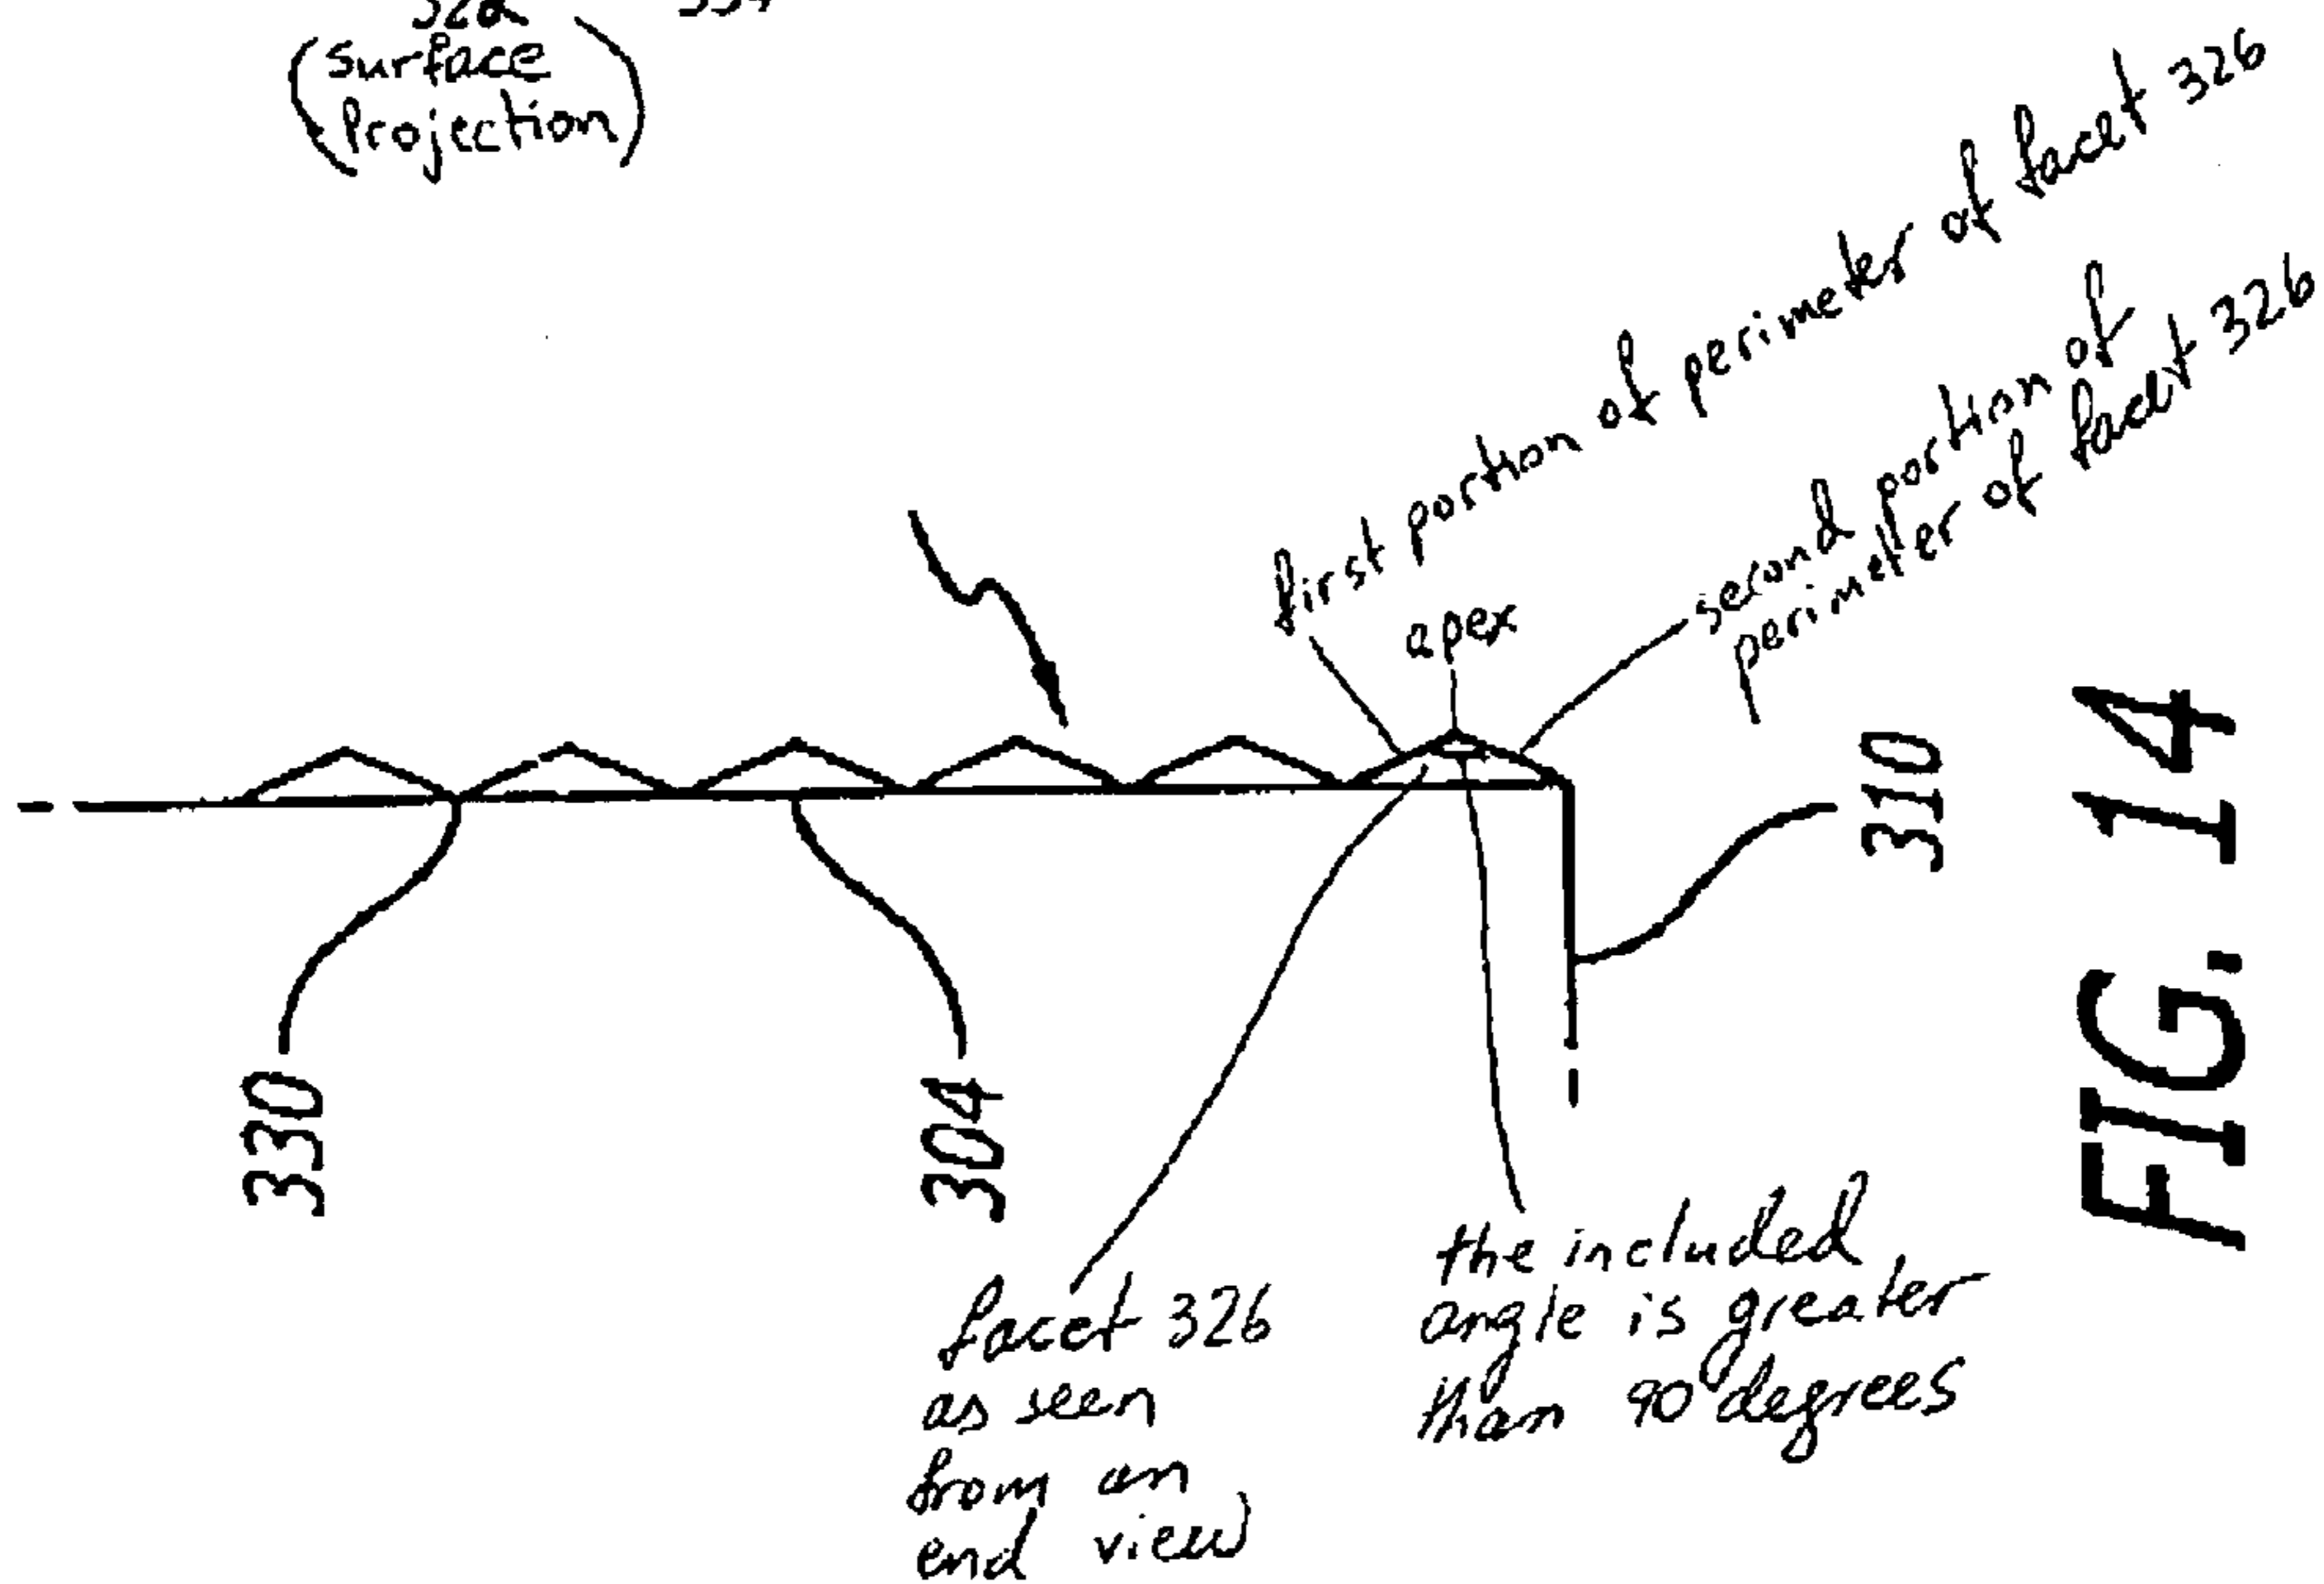 (surface
Projection)
first portion of perimeter of facet 326
apex
second portion of
perimeter of facet 326
310
FIG. 14
330
304
facet 326
as seen
from an
end view
the included
angle is greater
than 90 degrees